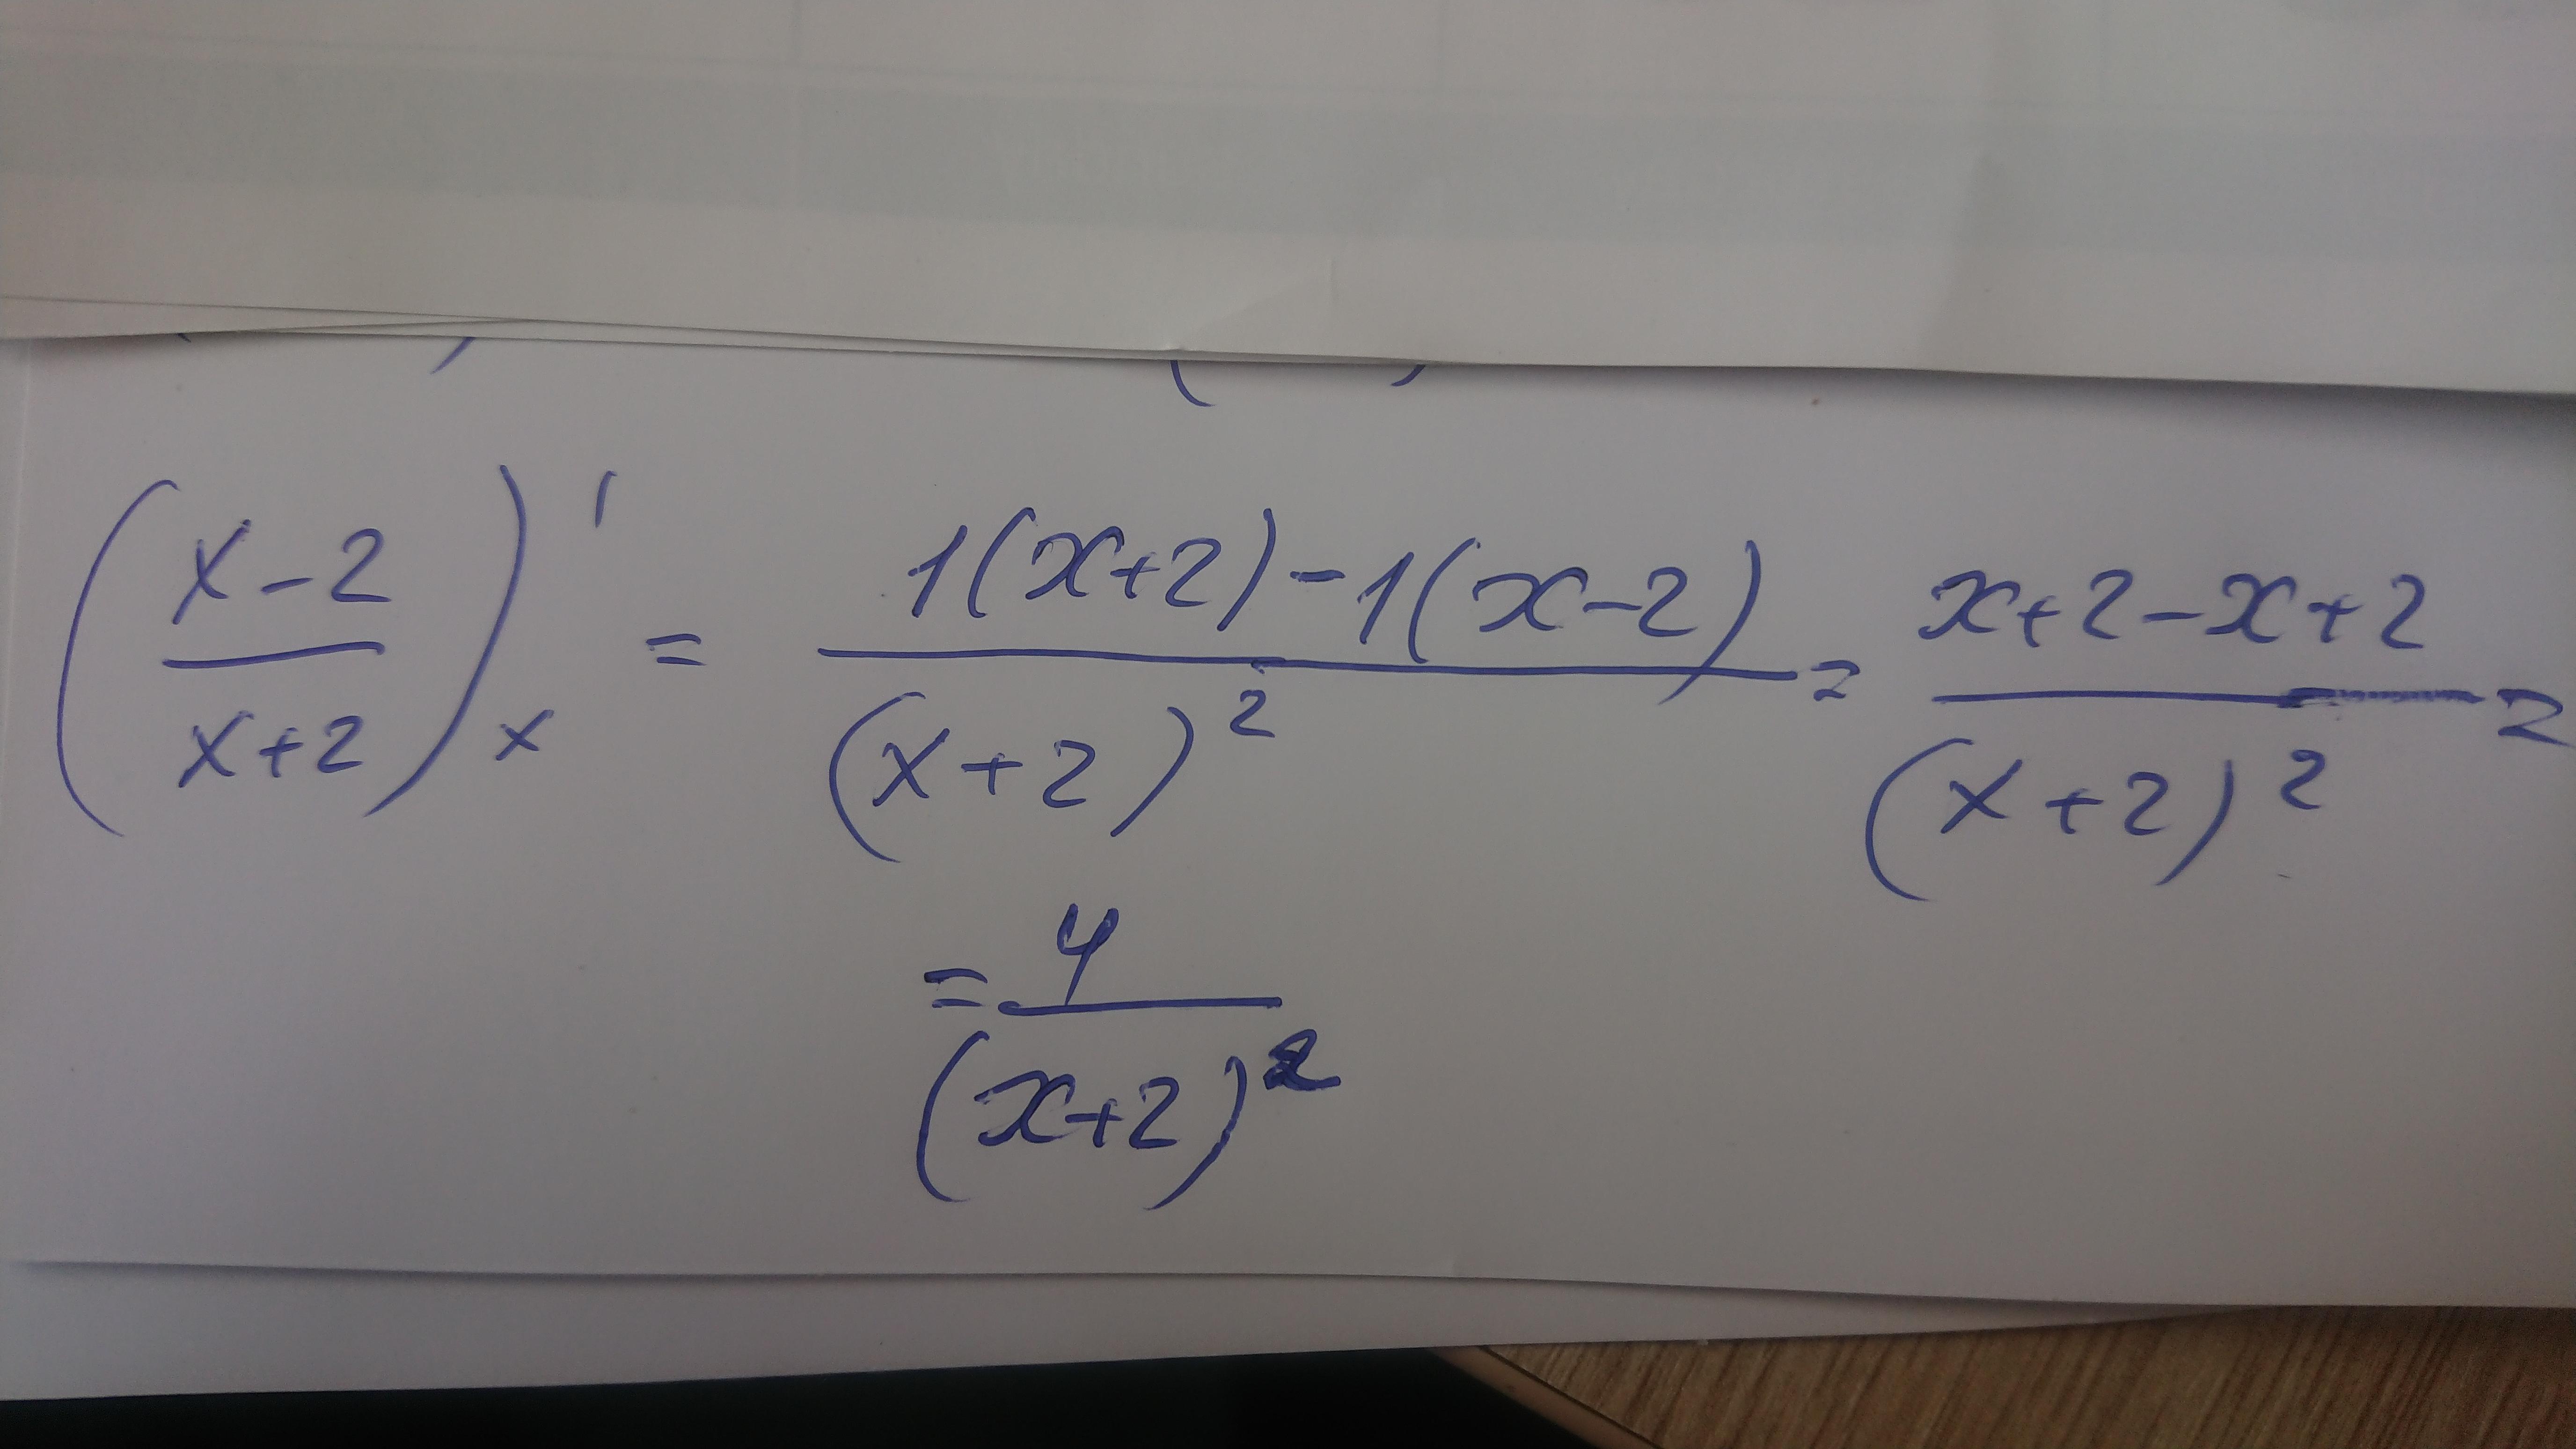 (x-2/x+2)'x = 1(x+2)-1(x-2)/(x+2)² = x+2-x+2/(x+2)² =
= 4/(x+2)²